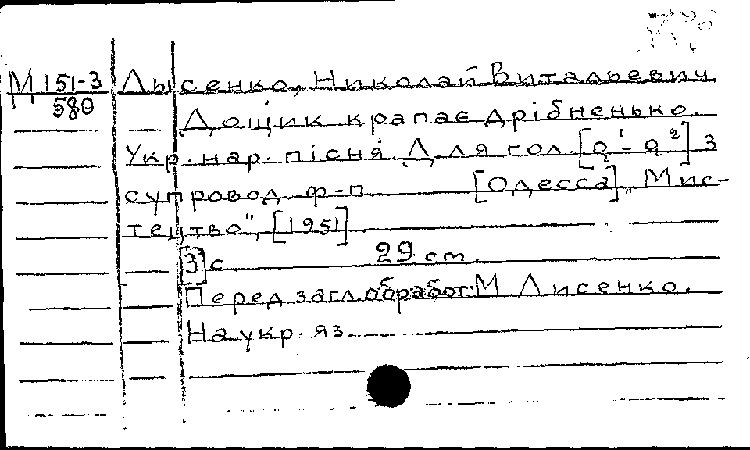 М 151-3 Лысенко, Николай Витальевич
580
Дощик крапає дрібненько.
Укр. нар. пісня. Для гол. [a¹ - a²] з
супровод. ф-п. [Одесса], "Мис-
тецтво", [1951]
[3] с. 29 см.
Перед загл. обработ. М. Лисенко.
На укр. яз.